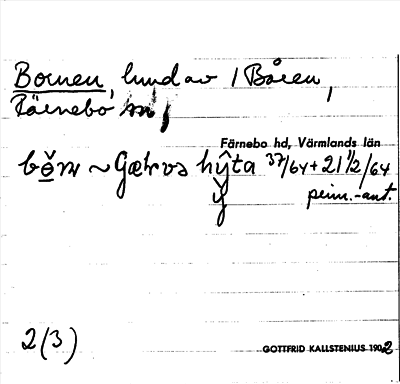 Bornen, lund av / Båren,
Färnebo sn,
Färnebo hd, Värmlands län
bo̱̊m ~ Gæt vs hŷta 37/64 + 21 1/2/64
y̌
prim.-ant.
2(3)
GOTTFRID KALLSTENIUS 1902